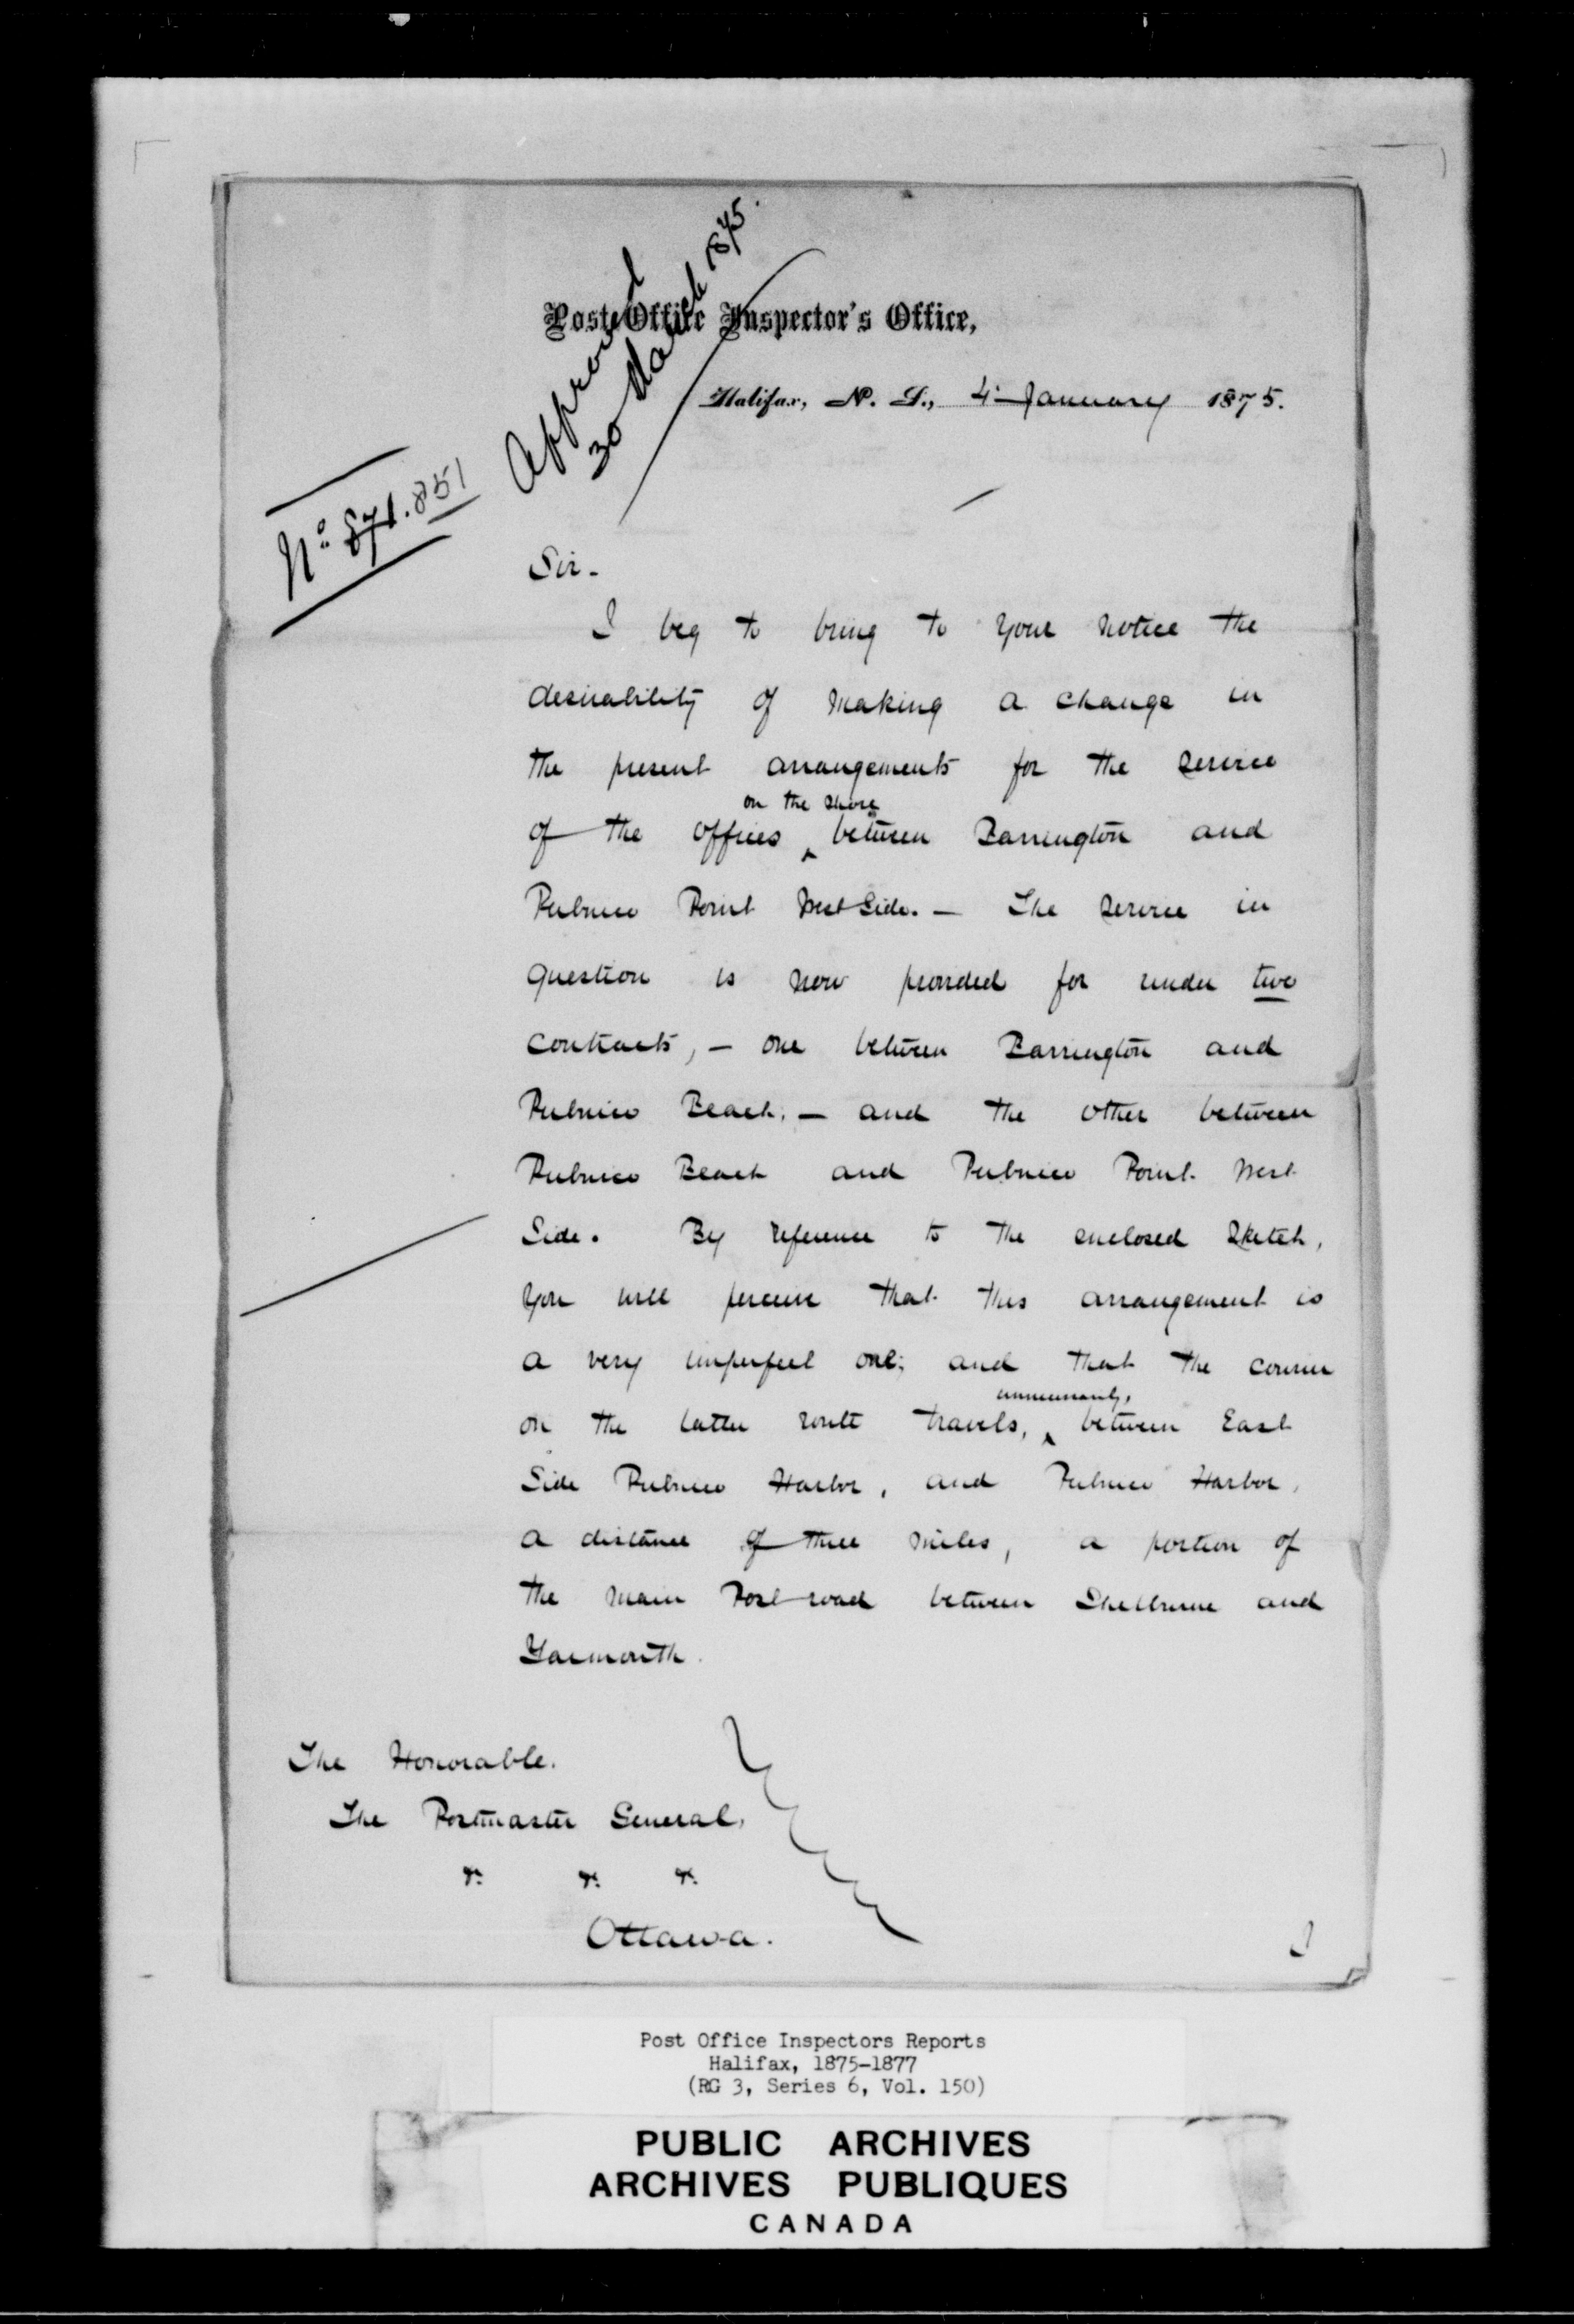 Approved
30 March 1875.
Post Office Inspector's Office,
Halifax, N. S., 4 January 1875.
No. 871. 851
Sir -
I beg to bring to your notice the
desirability of making a change in
the present arrangements for the service
of the offices on the shore between Barrington and
Pubnico Point West Side. — The service in
question is now provided for under two
contracts, — one between Barrington and
Pubnico Beach, — and the other between
Pubnico Beach and Pubnico Point West
Side. By reference to the enclosed sketch,
you will perceive that this arrangement is
a very imperfect one; and that the courier
on the latter route travels, unnecessarily, between East
Side Pubnico Harbor, and Pubnico Harbor,
a distance of three miles, a portion of
the main Post road between Shelburne and
Yarmouth.
The Honorable.
The Postmaster General,
&c. &c. &c.
Ottawa.
I
Post Office Inspectors Reports
Halifax, 1875-1877
(RG 3, Series 6, Vol. 150)
PUBLIC ARCHIVES
ARCHIVES PUBLIQUES
CANADA